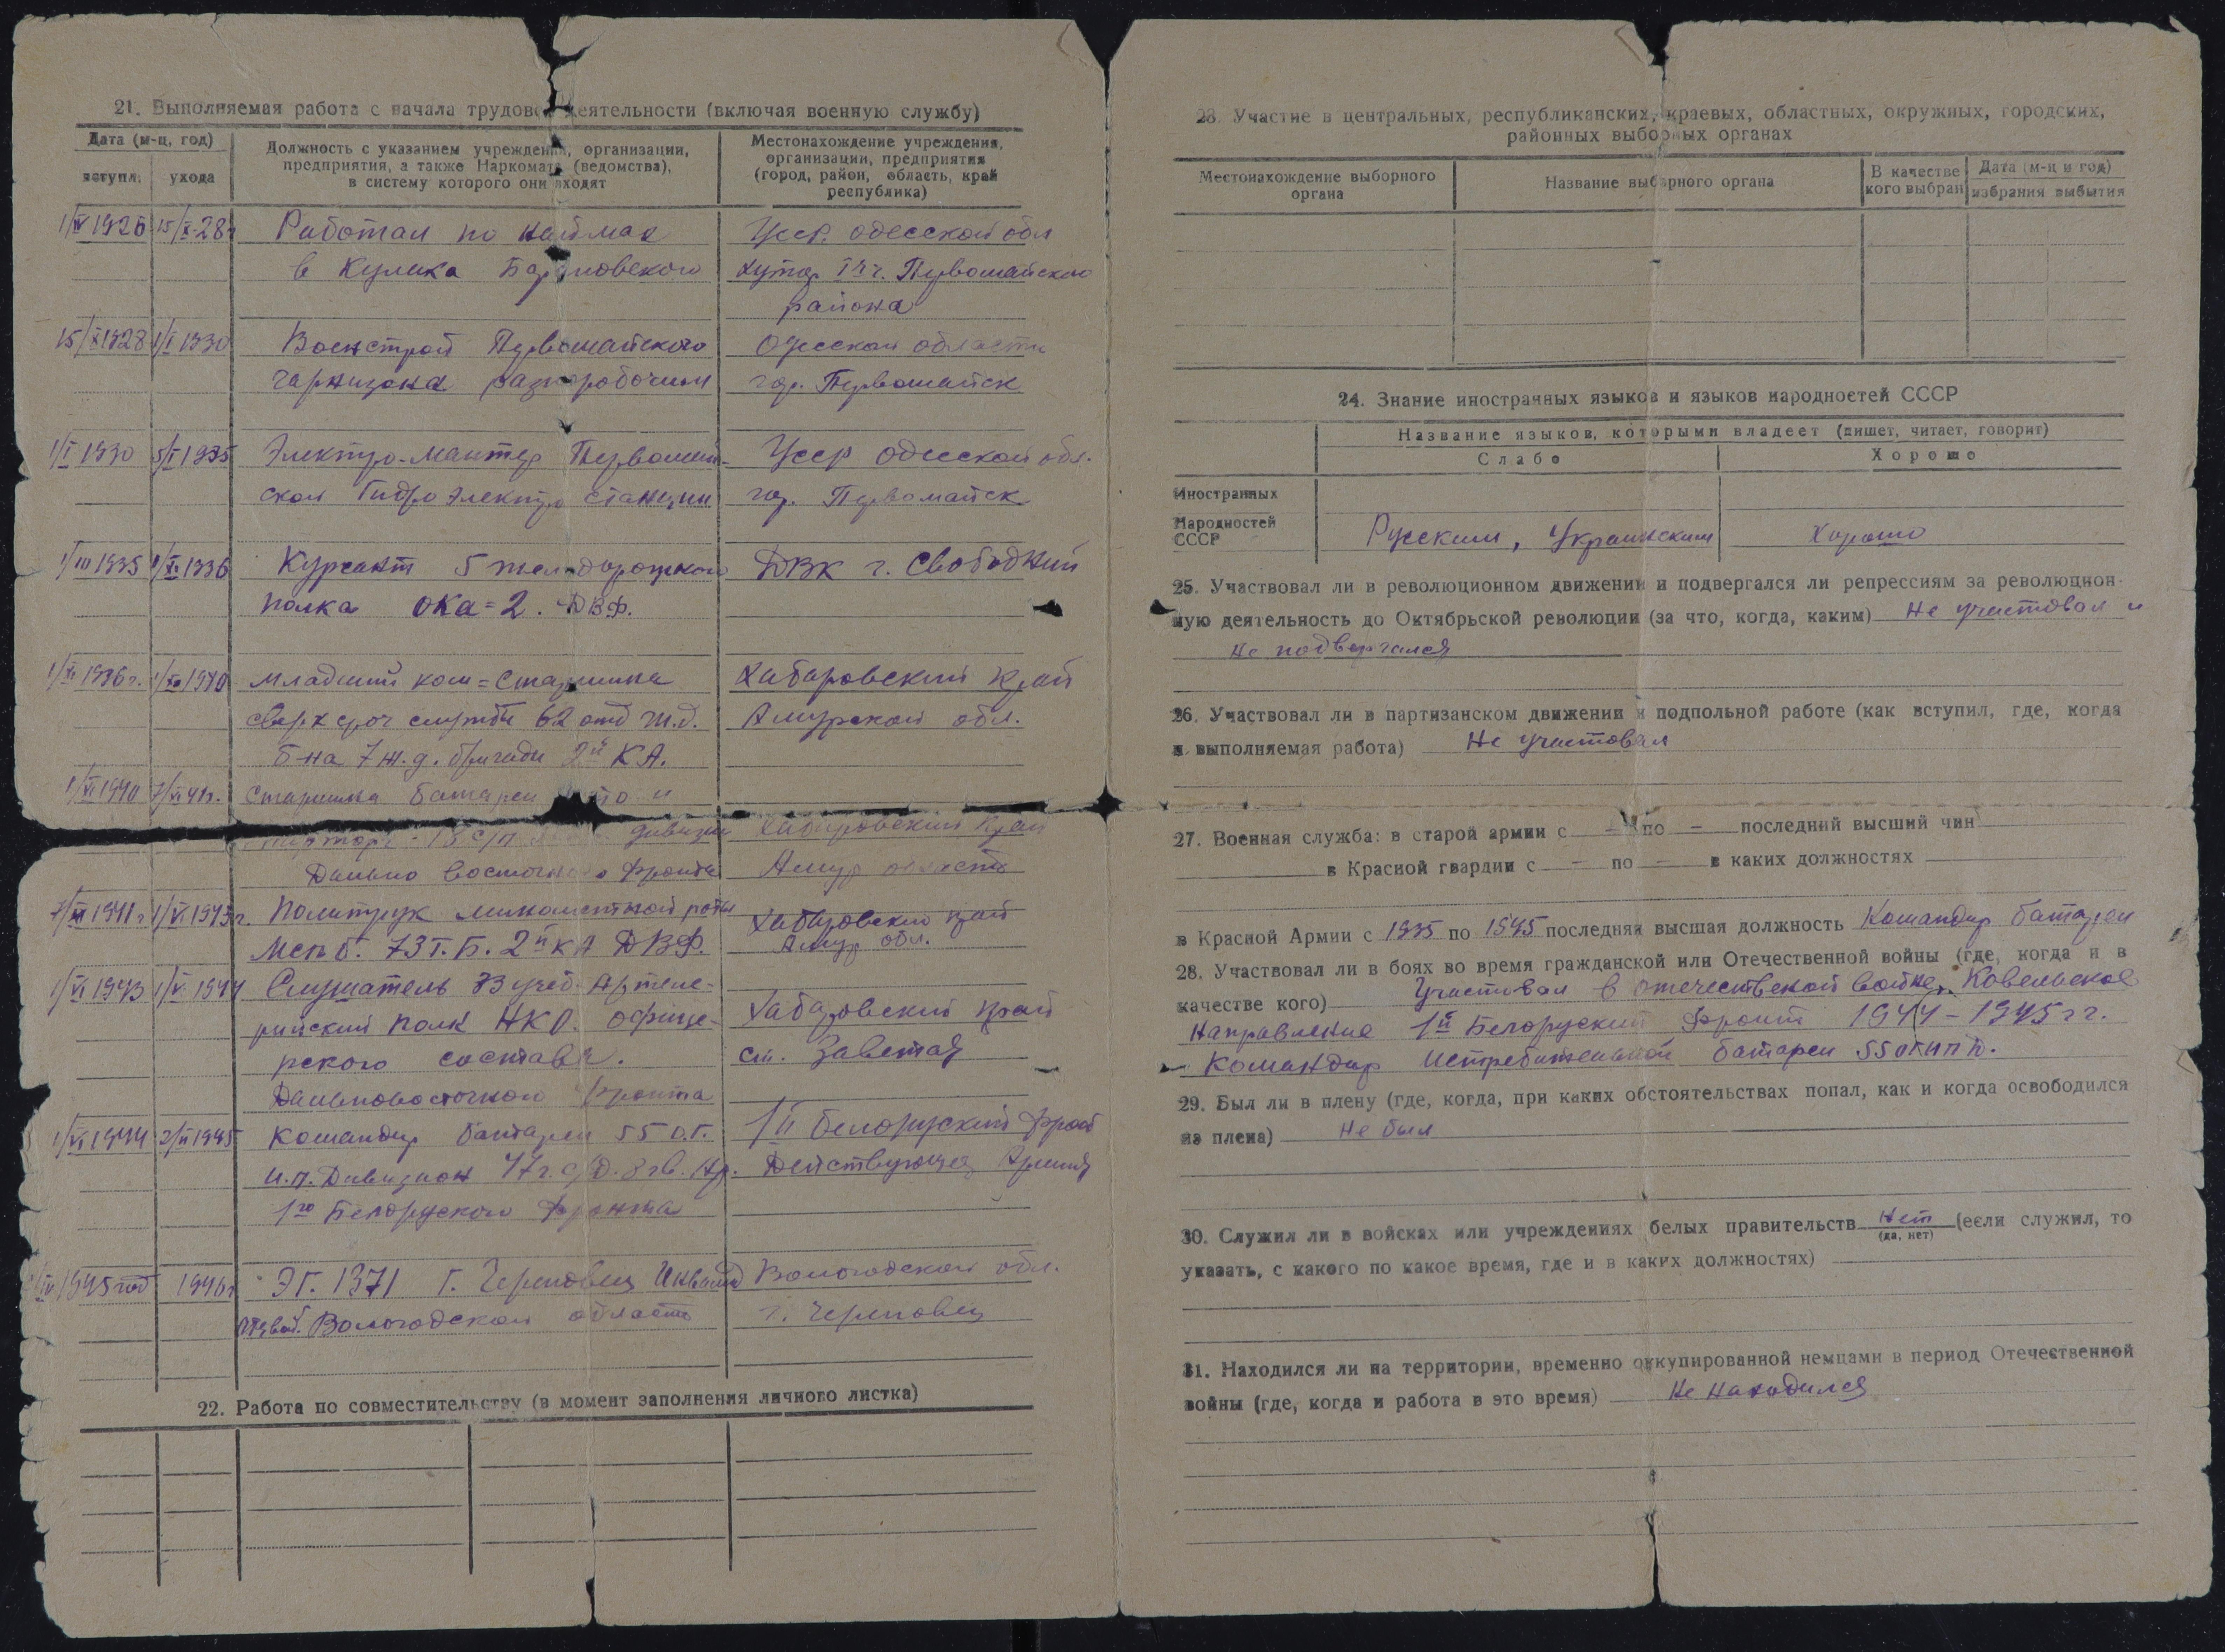 21. Выполняемая работа с начала трудовой деятельности (включая военную службу)
Дата (м-ц, год)
вступл. ухода
Должность с указанием учреждения, организации,
предприятия, а также Наркомата (ведомства),
в систему которого они входят
Местонахождение учреждения,
организации, предприятия
(город, район, область, край
республика)
1/V 1926 15/X-28г Работал по наймах Усср. одесской обл
в Кулака Барановского хутор Первомайского
района
15/X1928 1/I 1930 Военстрой Первомайского Одесской области
гарнизона разноробочим гор. Первомайск
1/I 1930 5/I 1935 Электро-мантер Первомай- Усср одесской обл.
ской Гидро электро станции гор. Первомайск
1/III 1935 1/XI 1936 Курсант 5 желдорожном ДВК г. Свободний
полка ока=2. ДВФ.
1/XI 1936г. 1940 младший ком=старшина Хабаровский край
сверх сроч служби 62 отд ж.д. Амурской обл.
б-на 7 ж.д. бригади 2й КА.
1/VI 1940 7/VI 41г. Старшина батареи и
дивизии Хабаровский край
Дально восточного фронта Амур область
1941г 1/VI 1943г. Политрук минометной роты Хабаровский край
73 Т.Б. 2й КА ДВФ. Амур обл.
1/VI 1943 1/V 1944 Слушатель 33 учеб. Артиле-
рийский полк НКО. офице- Хабаровский край
рского состава. ст. Заветая
Дальновосточного фронта
1/VI 1944 2/II 1945 Командир батареи 55 о.г. 1й белоруский фронт
и.п. Дивизион 47 г. с/д. 8 гв. Ар. Действующея Армия
1го Белоруского фронта
1945 год 1946г ЭГ. 1371 г. Череповец Инвалид Вологодской обл.
Вологодской область г. Череповец
22. Работа по совместительству (в момент заполнения личного листка)
23. Участие в центральных, республиканских, краевых, областных, окружных, городских,
районных выборных органах
Местонахождение выборного
органа
Название выборного органа
В качестве
кого выбран
Дата (м-ц и год)
избрания выбытия
24. Знание иностранных языков и языков народностей СССР
Название языков, которыми владеет (пишет, читает, говорит)
Слабо Хорошо
Иностранных
Народностей
СССР
Русским, Украинским Хорошо
25. Участвовал ли в революционном движении и подвергался ли репрессиям за революцион-
ную деятельность до Октябрьской революции (за что, когда, каким) Не участвовал и
не подвергался
26. Участвовал ли в партизанском движении и подпольной работе (как вступил, где, когда
и выполняемая работа) Не участовал
27. Военная служба: в старой армии с - по - последний высший чин
в Красной гвардии с - по - в каких должностях
в Красной Армии с 1935 по 1945 последняя высшая должность Командир батареи
28. Участвовал ли в боях во время гражданской или Отечественной войны (где, когда и в
качестве кого) Участовал в отечественной войне. Ковельское
Направление 1й Белоруский Фронт 1944-1945 гг.
Командир Истребительной батареи 55 огипд.
29. Был ли в плену (где, когда, при каких обстоятельствах попал, как и когда освободился
из плена) Не был
30. Служил ли в войсках или учреждениях белых правительств Нет (если служил, то
(да, нет)
указать, с какого по какое время, где и в каких должностях)
31. Находился ли на территории, временно оккупированной немцами в период Отечественной
войны (где, когда и работа в это время) Не находился